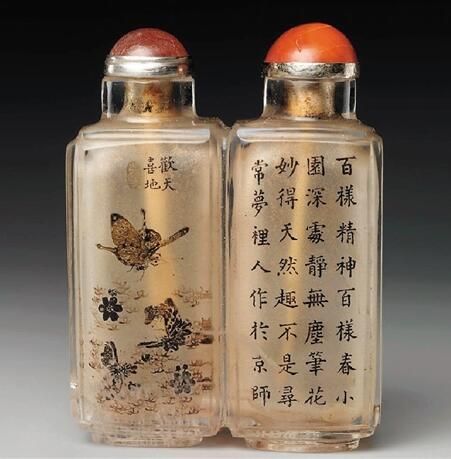 歡天
喜地
百樣精神百樣春小
園深處靜無塵筆花
妙得天然趣不是尋
常夢裡人作於京師